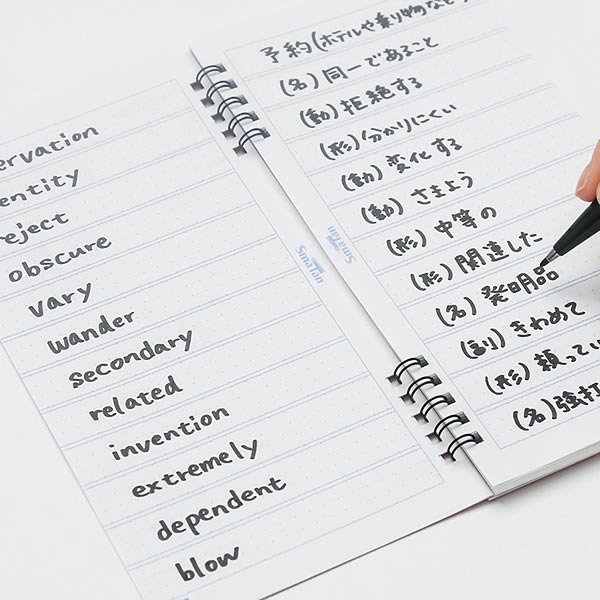 ervation
entity
eject
obscure
vary
wander
secondary
related
invention
extremely
dependent
blow
SmaTan
予約(ホテルや乗り物など
(名)同一であること
(動)拒絶する
(形)分かりにくい
(動)変化する
(動)さまよう
(形)中等の
(形)関連した
(名)発明品
(副)きわめて
(形)頼ってい
(名)強打
SmaTan